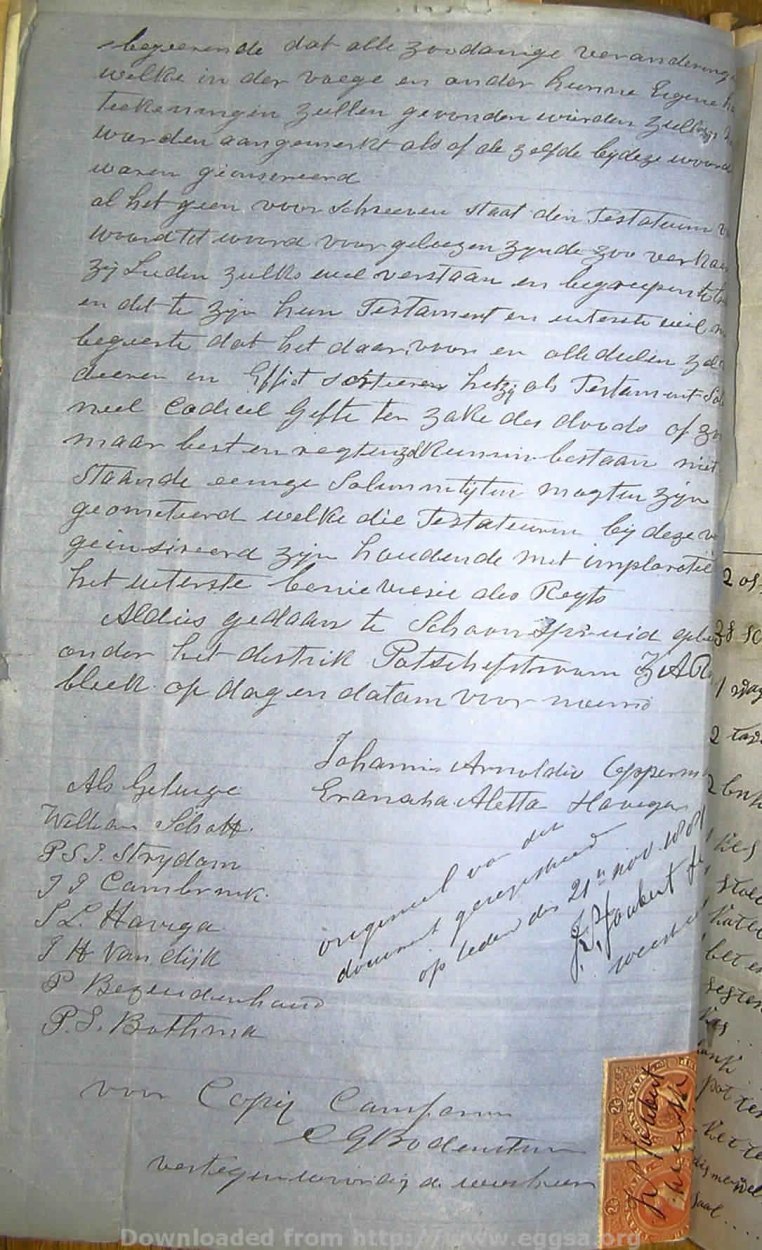 begeerende dat alle zoodanige verandering
welke in der voege en onder hunne Eigene
teekeningen zullen gevonden wurden zullen
worden aangemerkt als of de zelfde by deze woord
waren geinsereerd
al het geen voor schreeven staat den Testateuren
woord tot woord voor geleezen zynde zoo verklaa
zij Luden zulks wel verstaan en begreepen te
en dit te zijn hun Testament en uiterste wil
begeerte dat het daarvoor en alle deelen zal
deeren en Effect sorteeren hetzij als Testament
neel Codicel Gifte ter zake des doods of zo
maar best en regtens kunnen bestaan niet
staande eenige Solemnityten mogten zijn
geometeerd welke die Testateuren by deze
geinsireerd zijn houdende met imploratie
het uiterste benievicie des Regts
Aldus gedaan te Schoonspruid gele
onder het distrik Potschefstroom Z A R
bliek op dag en datam voor meeno
Johannis Arnoldis Opperm
Als Getuige
Eranaha Aletta Havega
William Schott.
P S J. Strydom
J J Cambrink.
S L. Havega
J H Van dijk
P Bezuidenhoud
P. S. Bothma
origineel van dit
document geregistreerd
op heden den 21n nov. 1881
J. Joubert
weesheer
voor Copij Camform
C G Bodenstein
vertegenwoordig de weesheer
2 os
38 sc
1 wag
2
2
stoel
bet
kas
bank
pot
ketle
saal
Downloaded from http://www.eggsa.org